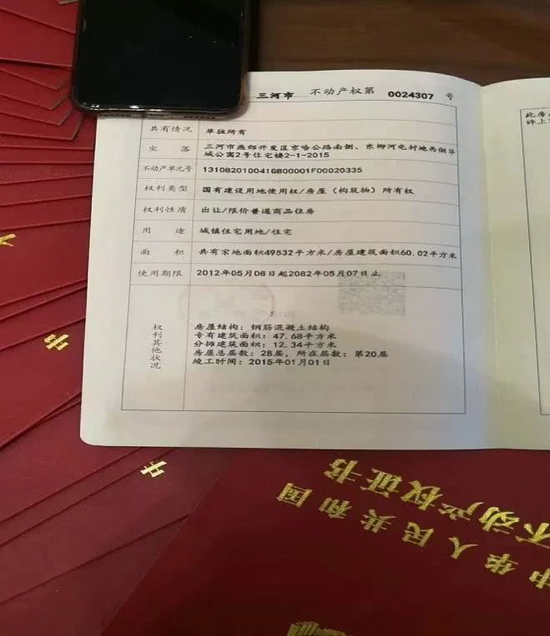 三河市 不动产权第 0024307 号
共有情况 单独所有
坐落 三河市燕郊开发区京哈公路南侧、东柳河屯村地西侧华
城公寓2号住宅楼2-1-2015
不动产单元号 131082010041GB00001F00020335
权利类型 国有建设用地使用权/房屋(构筑物)所有权
权利性质 出让/限价普通商品住房
用途 城镇住宅用地/住宅
面积 共有宗地面积49532平方米/房屋建筑面积60.02平方米
使用期限 2012年05月08日起2082年05月07日止
权利其他状况
房屋结构:钢筋混凝土结构
专有建筑面积:47.68平方米
分摊建筑面积:12.34平方米
房屋总层数:28层,所在层数:第20层
竣工时间:2015年01月01日
此房
许上
书
书
中华人民共和国
不动产权证书